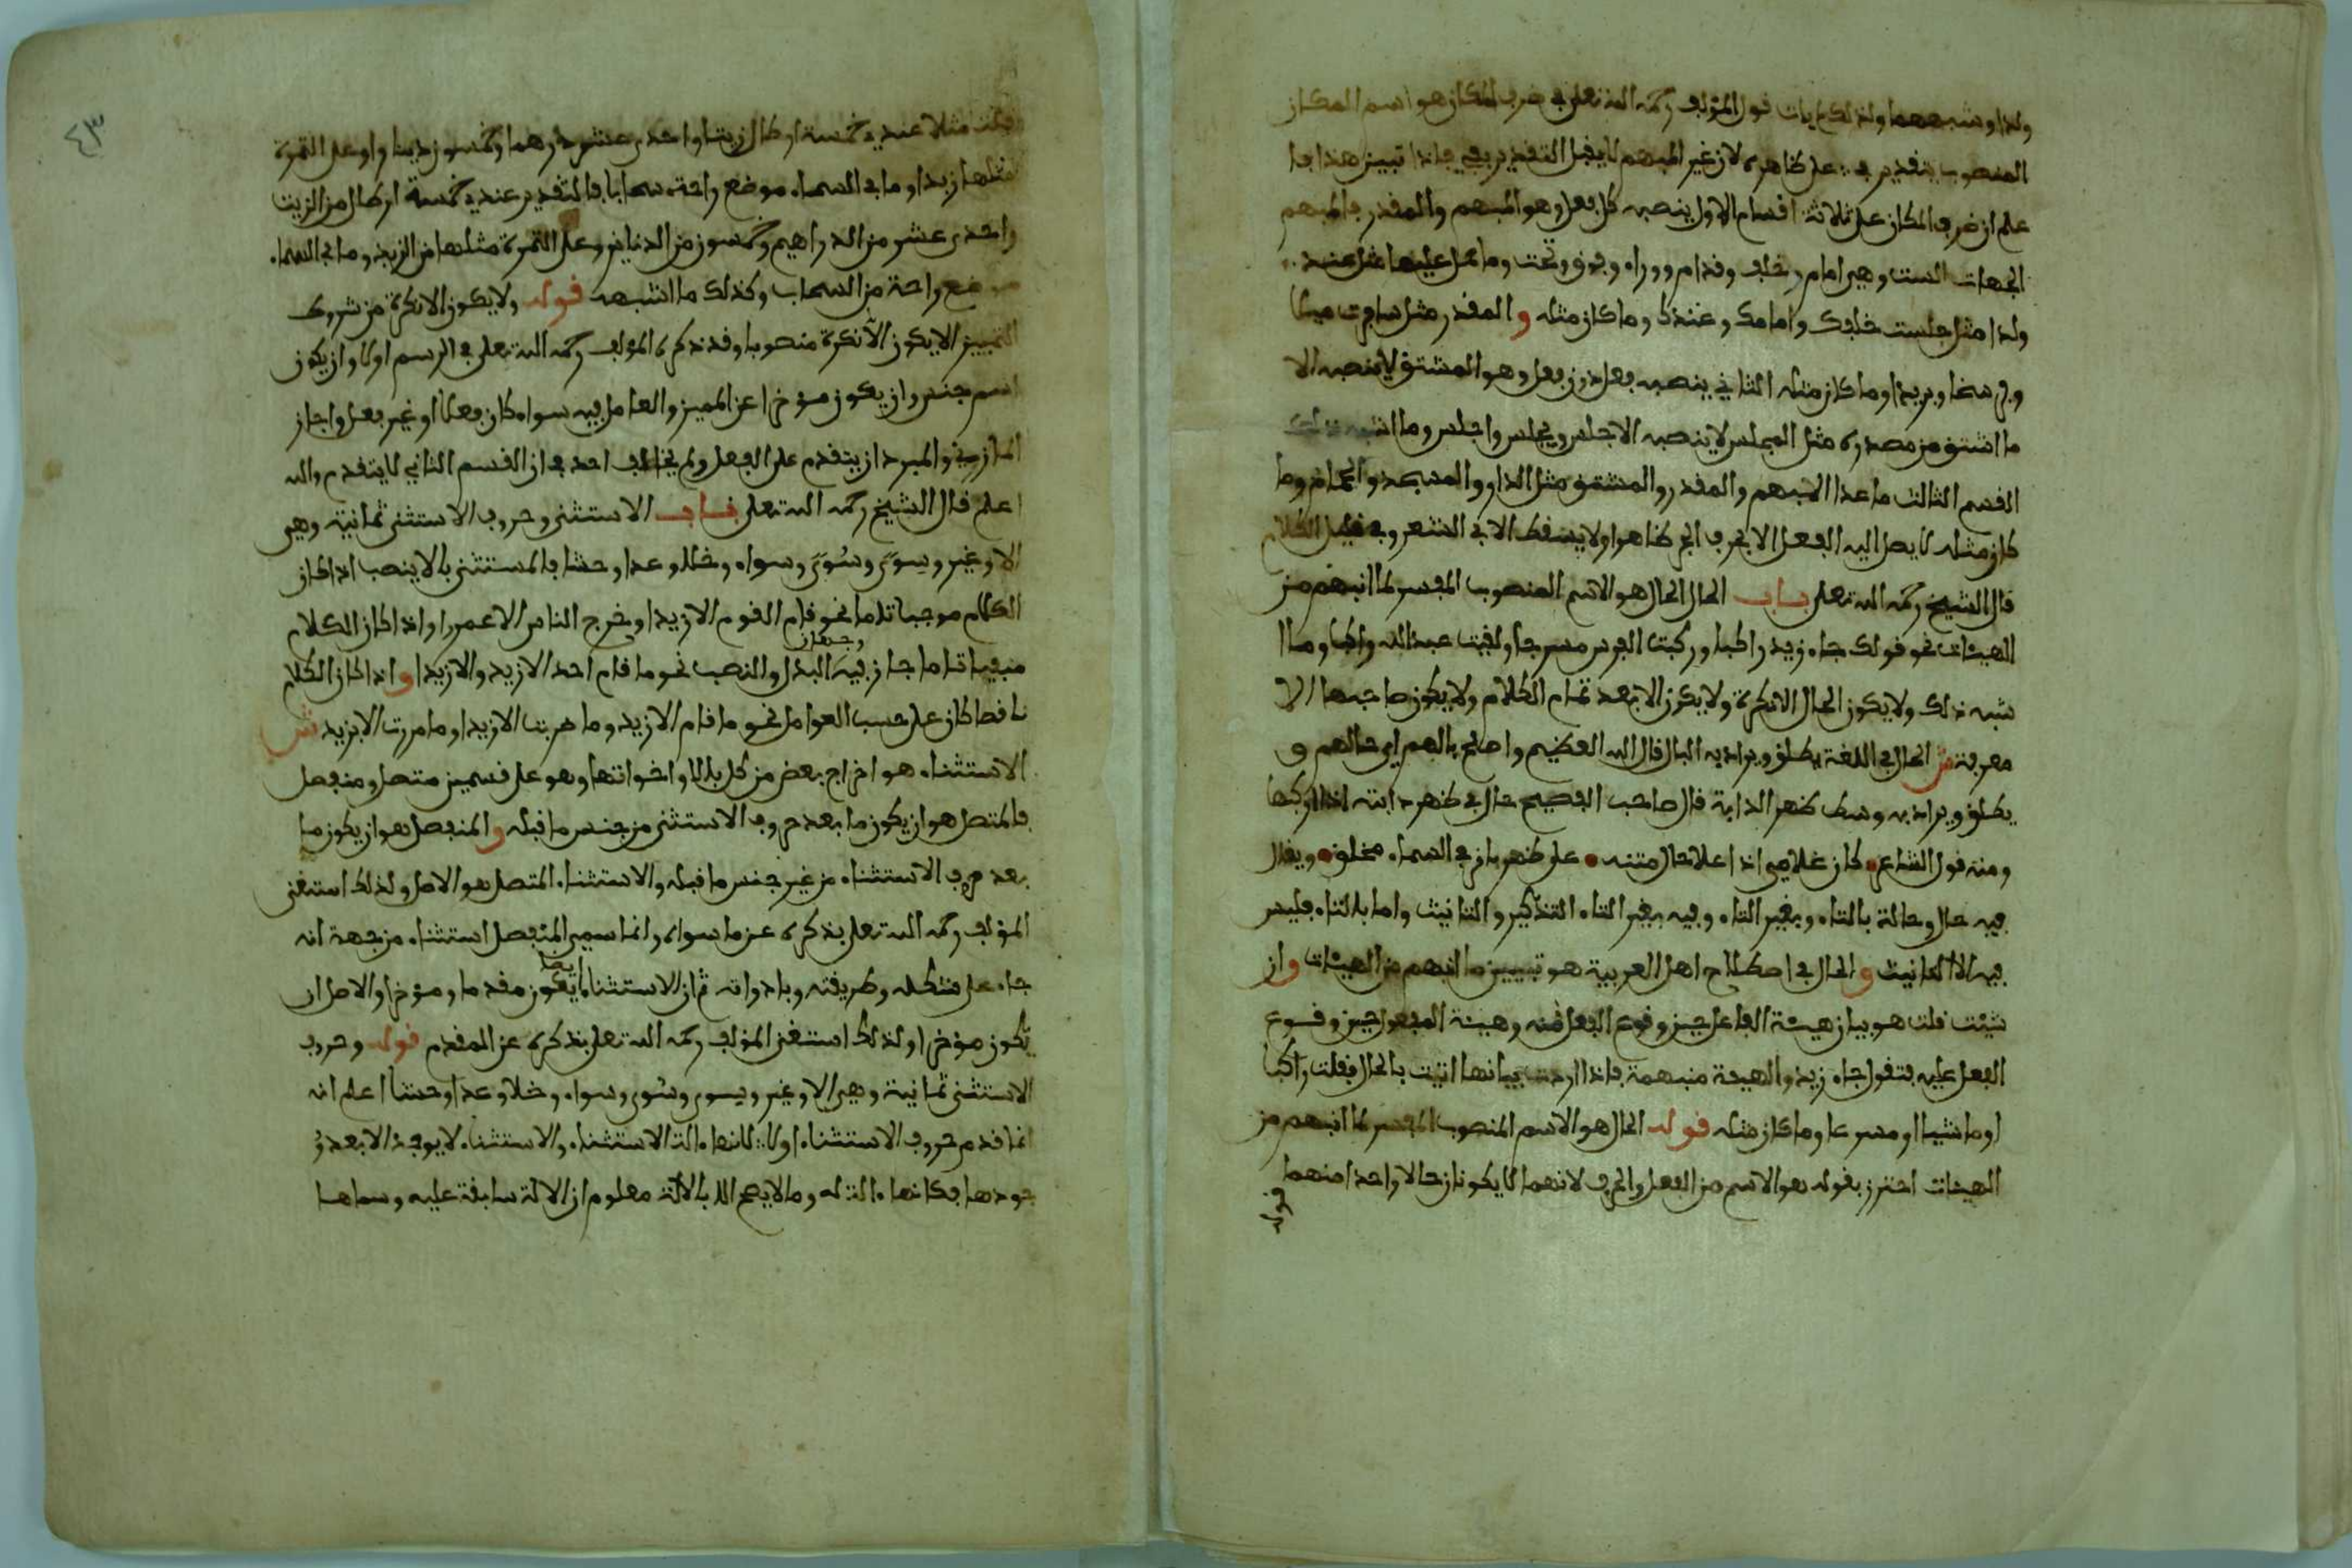 ولدا وشبههما ولذلك لم يات قول المؤلف رحمه الله تعلى في ظرف المكان هو اسم المكان
المنصوب بتقدير في على ظاهره لان غير المبهم لا يقبل التقدير بفي فاذا تبين هذا فا
علم ان ظرف المكان على ثلاثة اقسام الاول ينصبه كل فعل وهو المبهم والمقدر فالمبهم
الجهات الست وهي امام وخلف وقدام ووراء وفوق وتحت وما حمل عليها مثل عند
ولدا مثل جلست خلفك وامامك وعندك وما كان مثله والمقدر مثل سافرت ميلا
وفرسخا وبريدا وما كان مثله الثاني ينصبه فعل دون فعل وهو المشتق لا ينصبه الا
ما اشتق من مصدره مثل المجلس لا ينصبه الا جلس ويجلس واجلس وما اشبه ذلك
القسم الثالث ما عدا المبهم والمقدر والمشتق مثل الدار والمسجد والحمام وما
كان مثله لا يصل اليه الفعل الا بحرف الجر ظاهرا ولا يسقط الا في الشعر وفي قليل الكلام
قال الشيخ رحمه الله تعلى باب الحال الحال هو الاسم المنصوب المفسر لما انبهم من
الهيئات نحو قولك جاء زيد راكبا وركبت الفرس مسرجا ولقيت عبد الله راكبا وما ا
شبه ذلك ولا يكون الحال الا نكرة ولا يكون الا بعد تمام الكلام ولا يكون صاحبها الا
معرفة ش الحال في اللغة يطلق ويراد به البال قال الله العظيم واصلح بالهم اي حالهم و
يطلق ويراد به وسط ظهر الدابة قال صاحب الفصيح حال في ظهر دابته اذا ركبها
ومنه قول الشاعر كان غلامي اذا علا حال متنه على ظهر باز في السماء محلق ويقال
فيه حال وحالة بالتاء وبغير التاء وفيه بغير التاء التذكير والتانيث واما بالتاء فليس
فيه الا التانيث والحال في اصطلاح اهل العربية هو تبيين ما انبهم من الهيئات وان
شئت قلت هو بيان هيئة الفاعل حين وقوع الفعل منه وهيئة المفعول حين وقوع
الفعل عليه فتقول جاء زيد والهيئة منبهمة فاذا اردت بيانها اتيت بالحال فقلت راكبا
او ماشيا او مسرعا وما كان مثله قوله الحال هو الاسم المنصوب المفسر لما انبهم من
الهيئات احترز بقوله هو الاسم من الفعل والحرف لانهما لا يكونان حالا واحدا منهما
قوله
٤٣
قلت مثلا عندي خمسة ارطال زيتا واحدى عشر درهما وخمسون دينارا وعلى التمرة
مثلها زبدا وما في السماء موضع راحة سحابا فالتقدير عندي خمسة ارطال من الزيت
واحدى عشر من الدراهيم وخمسون من الدنانير وعلى التمرة مثلها من الزبد وما في السماء
موضع راحة من السحاب وكذلك ما اشبهه قوله ولا يكون الا نكرة من شروط
التمييز الا يكون الا نكرة منصوبا وقد ذكره المؤلف رحمه الله تعلى في الرسم اولا وان يكون
اسم جنس وان يكون مؤخرا عن المميز والعامل فيه سواء كان فعلا او غير فعل واجاز
المازني والمبرد ان يتقدم على الفعل ولم يخالف احد في ان القسم الثاني لا يتقدم والله
اعلم قال الشيخ رحمه الله تعلى باب الاستثنى وحروف الاستثنى ثمانية وهي
الا وغير وسوى وسُوى وسواء وخلا وعدا وحشا فالمستثنى بالا ينصب اذا كان
الكلام موجبا تاما نحو قام القوم الا زيدا وخرج الناس الا عمرا واذا كان الكلام
منفيا تاما جاز فيه وجهان البدل والنصب نحو ما قام احد الا زيد والا زيدا واذا كان الكلام
ناقصا كان على حسب العوامل نحو ما قام الا زيد وما ضربت الا زيدا وما مررت الا بزيد ش
الاستثناء هو اخراج بعض من كل بالا او اخواتها وهو على قسمين متصل ومنفصل
فالمتصل هو ان يكون ما بعد حروف الاستثنى من جنس ما قبله والمنفصل هو ان يكون ما
بعد حرف الاستثناء من غير جنس ما قبله والاستثناء المتصل هو الاصل ولذلك استغنى
المؤلف رحمه الله تعلى بذكره عن ما سواه وانما سمي المنفصل استثناء من جهة انه
جاء على شكله وطريقته وبادواته ثم ان الاستثناء ايضا يكون مقدما ومؤخرا والاصل ان
يكون مؤخرا ولذلك استغنى المؤلف رحمه الله تعلى بذكره عن المقدم قوله وحروف
الاستثنى ثمانية وهي الا وغير وسوى وسُوى وسواء وخلا وعدا وحشا اعلم انه
انما قدم حروف الاستثناء اولا لانها ءالة الاستثناء والاستثناء لا يوجد الا بعد و
جودها فكانها ءالة له وما لا يصح الا بالالة معلوم ان الالة سابقة عليه وسماها